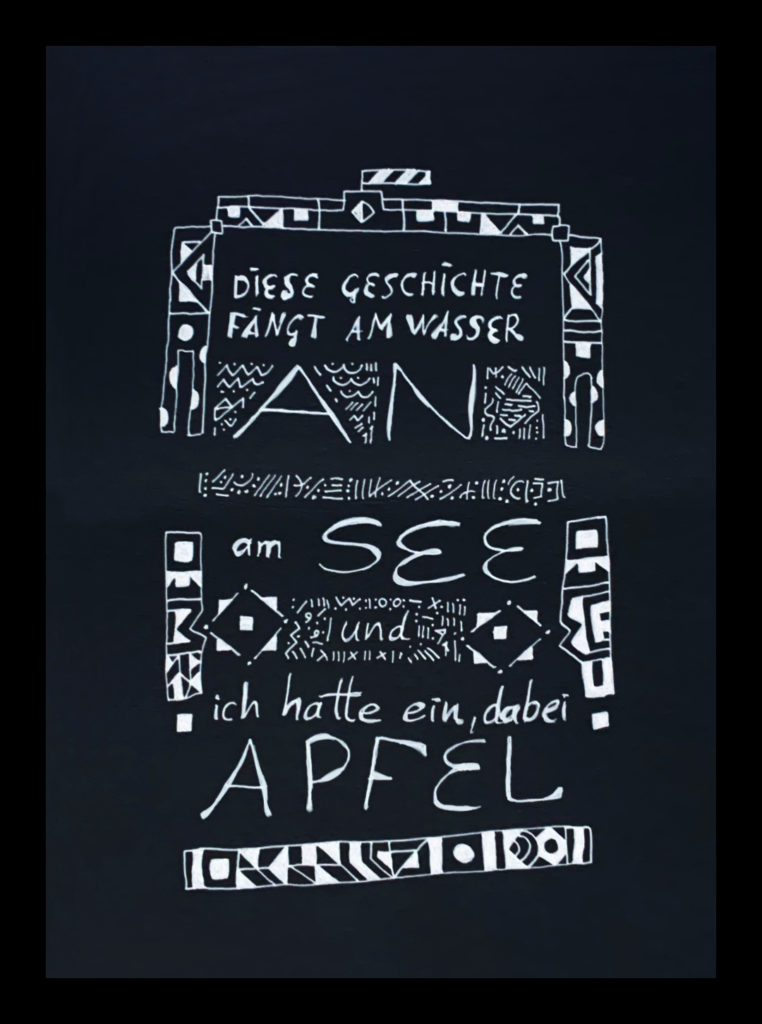 DIESE GESCHICHTE
FÄNGT AM WASSER
AN
am SEE
und
ich hatte ein, dabei
APFEL